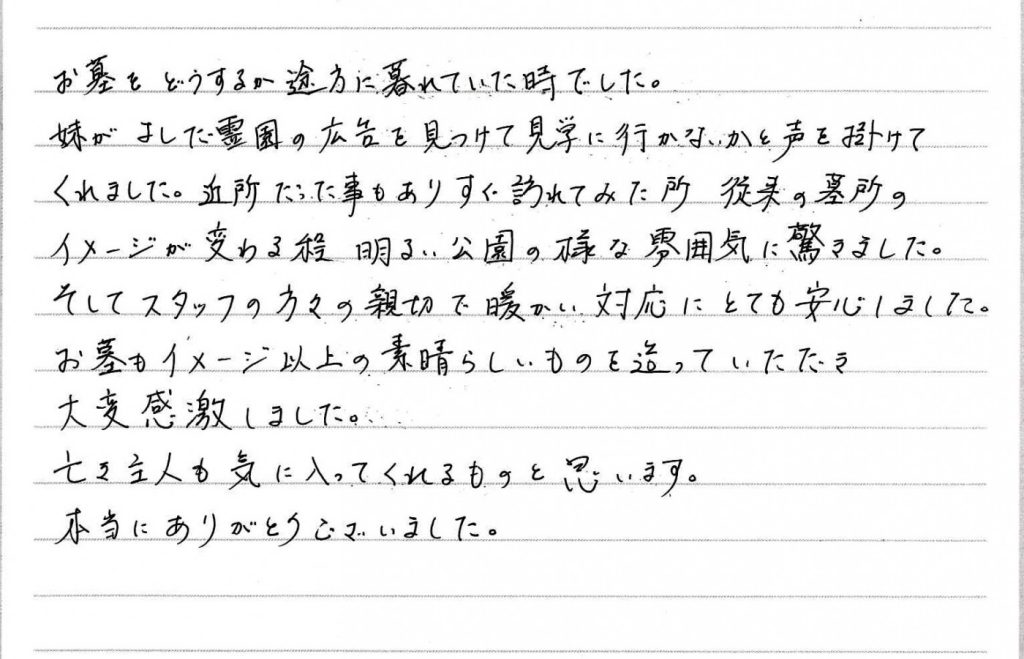 お墓をどうするか途方に暮れていた時でした。
妹がよしだ霊園の広告を見つけて見学に行かないかと声を掛けて
くれました。近所だった事もありすぐ訪れてみた所 従来の墓所の
イメージが変わる程 明るい公園の様な雰囲気に驚きました。
そしてスタッフの方々の親切で暖かい対応にとても安心しました。
お墓もイメージ以上の素晴らしいものを造っていただき
大変感激しました。
亡き主人も気に入ってくれるものと思います。
本当にありがとうございました。